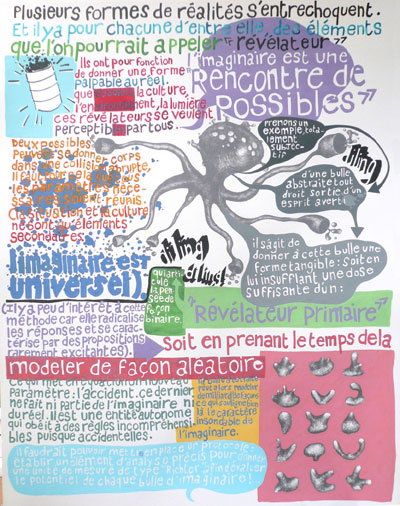 Plusieurs formes de réalités s'entrechoquent.
Et il y a pour chacune d'entre elle, des éléments
que l'on pourrait appeler "révélateur"
Ils ont pour fonction
de donner une forme
palpable au réel.
que la culture,
l'environnement, la lumière
ces révélateurs se veulent
perceptible partout.
l'imaginaire est une
Rencontre de
possibles
prenons un
exemple, tota-
lement
subjec-
tif
Deux possibles
peuvent se donner corps
dans une collision abrupte,
il faut pour cela que tous
les paramètres néce-
ssaires soient réunis.
La situation et la culture
ne sont qu'éléments
secondaires
l'imaginaire est
universel!
d'une bulle
abstraite tout
droit sortie d'un
esprit averti
il s'agit de
donner à cette bulle une
forme tangible: soit en
lui insufflant une dose
suffisante d'un:
qui arti-
cule la
pensée
de façon
binaire.
"Révélateur primaire"
(il y a peu d'intérêt à cette
méthode car elle radicalise
les réponses et se carac-
térise par des propositions
rarement excitantes).
Soit en prenant le temps de la
modeler de façon aléatoire
Ce qui met en équation un nouveau
paramètre: l'accident. ce dernier
ne fait ni partie de l'imaginaire ni
du réel. il est une entité autonome
qui obéit à des règles incompréhensi-
bles puisque accidentelles.
le caractère
insondable du
l'imaginaire.
il faudrait pouvoir mettre en place un protocole,
établir un élément d'analyse précis pour donner
une unité de mesure de type "Richter" afin d'évaluer
le potentiel de chaque bulle d'imaginaire!